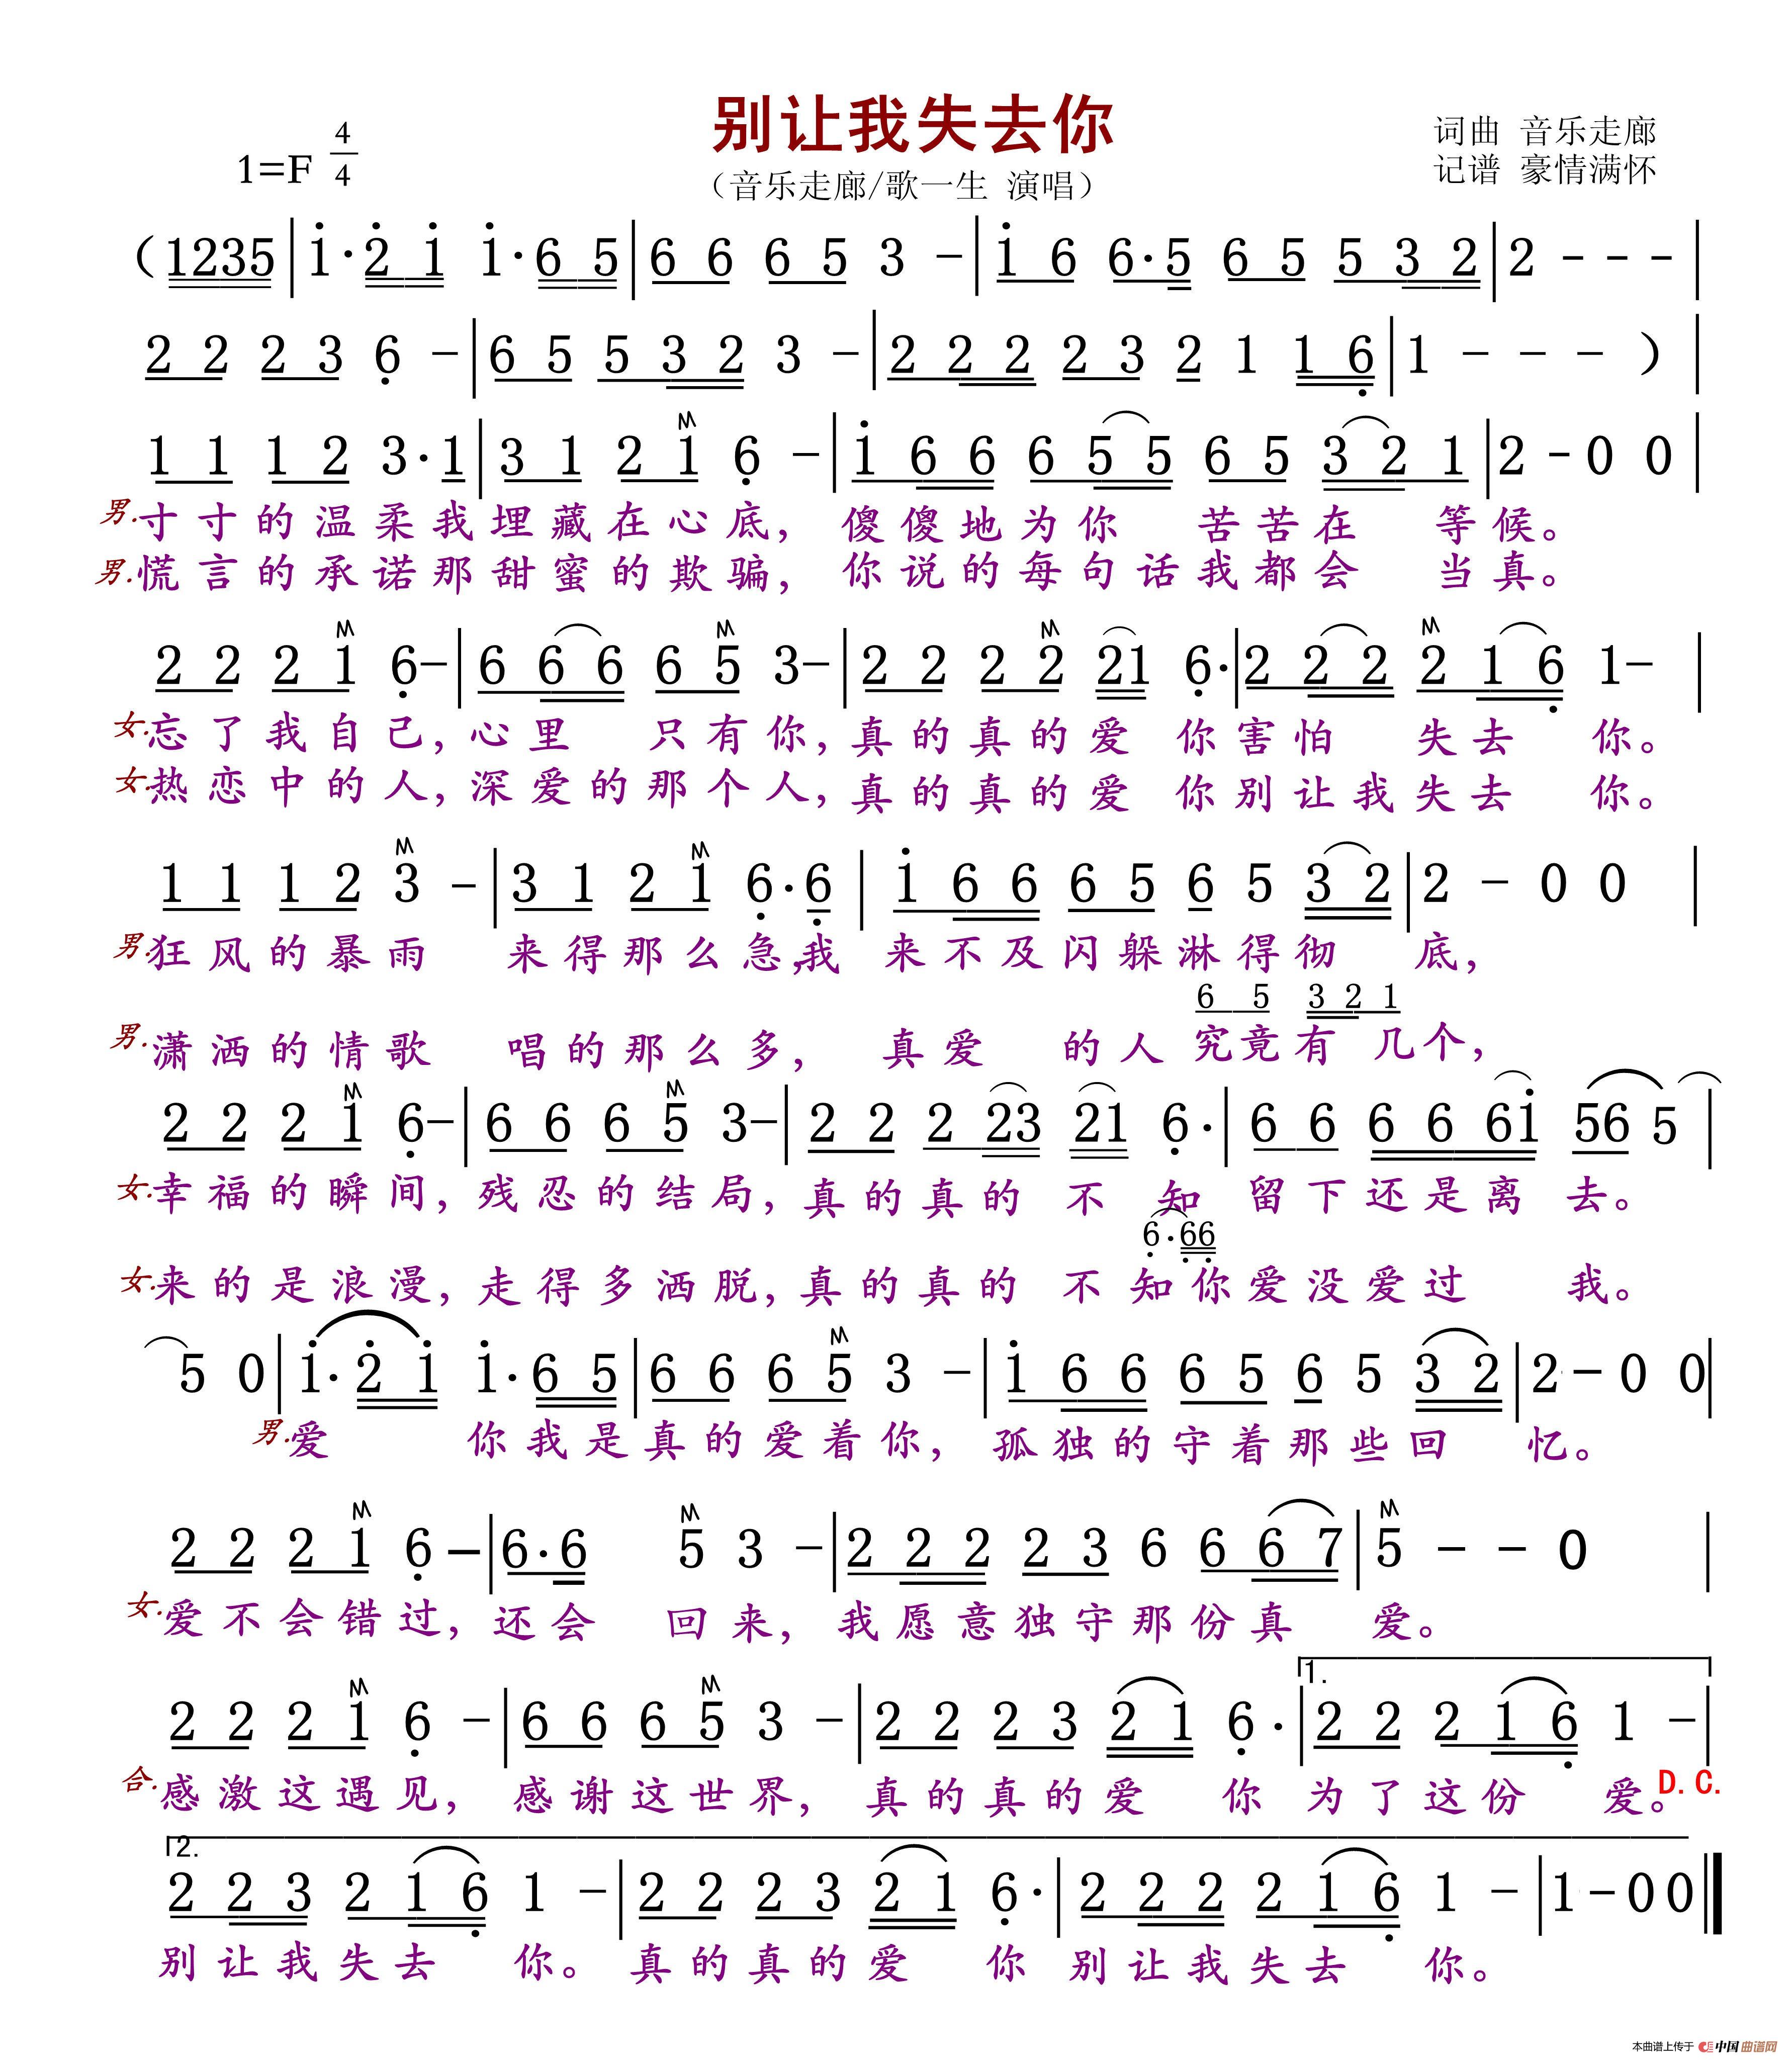 别让我失去你
1=F 4/4
（音乐走廊/歌一生 演唱）
词曲 音乐走廊
记谱 豪情满怀
（1235 | i·2 i i·6 5 | 6 6 6 5 3 － | i 6 6·5 6 5 5 3 2 | 2 - - - |
2 2 2 3 6 － | 6 5 5 3 2 3 － | 2 2 2 2 3 2 1 1 6 | 1 － － － ） |
1 1 1 2 3·1 | 3 1 2 1 6 － | i 6 6 6 5 5 6 5 3 2 1 | 2 - 0 0 |
男.寸寸的温柔我埋藏在心底，傻傻地为你 苦苦在 等候。
男.慌言的承诺那甜蜜的欺骗，你说的每句话我都会 当真。
2 2 2 1 6－ | 6 6 6 6 5 3－ | 2 2 2 2 21 6· | 2 2 2 2 1 6 1－ |
女.忘了我自己，心里 只有你，真的真的爱 你害怕 失去 你。
女.热恋中的人，深爱的那个人，真的真的爱 你别让我失去 你。
1 1 1 2 3 － | 3 1 2 1 6·6 | i 6 6 6 5 6 5 3 2 | 2 － 0 0 |
男.狂风的暴雨 来得那么急，我 来不及闪躲淋得彻 底，
6 5 3 2 1
男.潇洒的情歌 唱的那么多， 真爱 的人究竟有 几个，
2 2 2 1 6－ | 6 6 6 5 3－ | 2 2 2 23 21 6· | 6 6 6 6 6i 56 5 |
女.幸福的瞬间，残忍的结局，真的真的 不 知 留下还是离 去。
6·66
女.来的是浪漫，走得多洒脱，真的真的 不 知你爱没爱过 我。
5 0 | i·2 i i·6 5 | 6 6 6 5 3 － | i 6 6 6 5 6 5 3 2 | 2－0 0 |
男.爱 你我是真的爱着你， 孤独的守着那些回 忆。
2 2 2 1 6 － | 6·6 5 3 － | 2 2 2 2 3 6 6 6 7 | 5 － － 0 |
女.爱不会错过，还会 回来，我愿意独守那份真 爱。
1.
2 2 2 1 6 － | 6 6 6 5 3 － | 2 2 2 3 2 1 6· | 2 2 2 1 6 1 － |
合.感激这遇见， 感谢这世界， 真的真的爱 你 为了这份 爱。D.C.
2.
2 2 3 2 1 6 1 － | 2 2 2 3 2 1 6· | 2 2 2 2 1 6 1 － | 1－0 0 ‖
别让我失去 你。真的真的爱 你 别让我失去 你。
本曲谱上传于 中国曲谱网